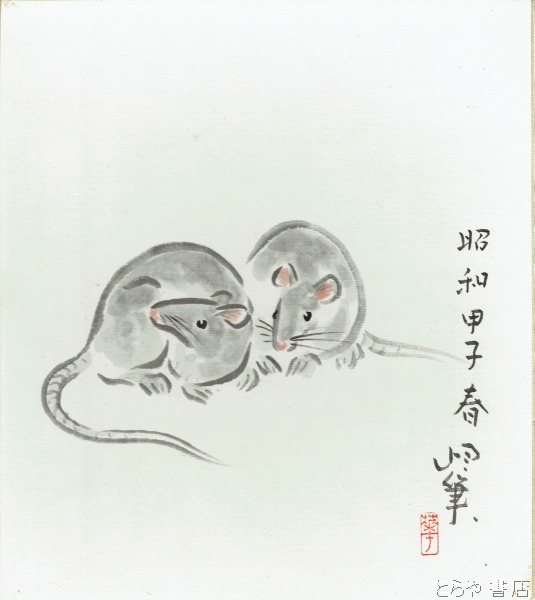 昭和甲子春
筆
とらや書店